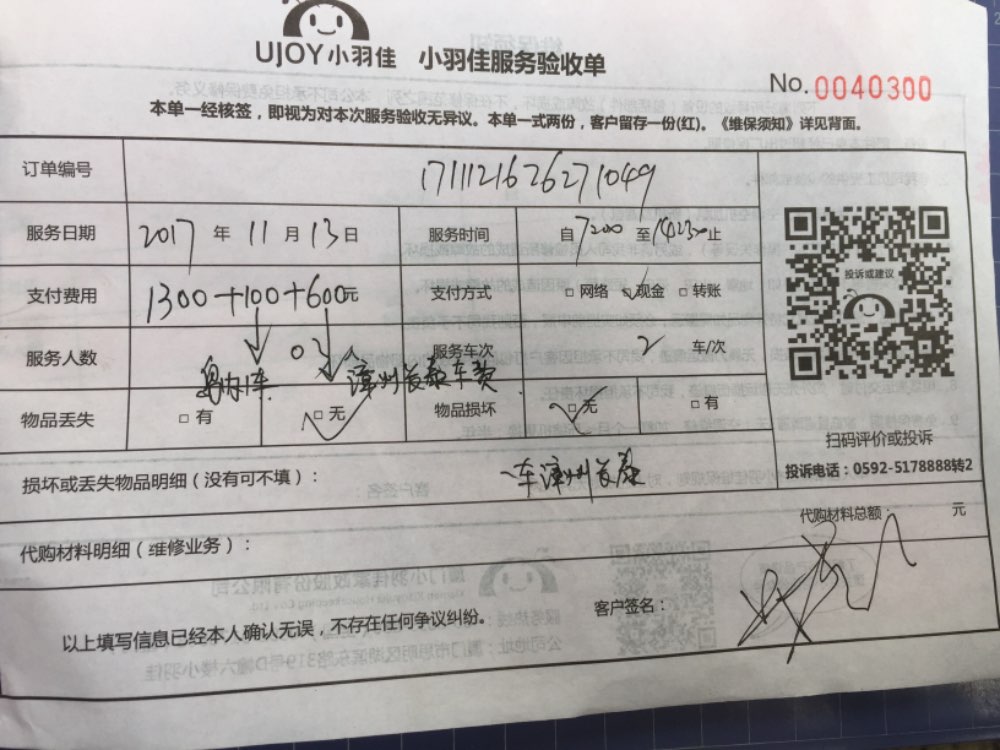 UJOY小羽佳 小羽佳服务验收单
No. 0040300
本单一经核签，即视为对本次服务验收无异议。本单一式两份，客户留存一份(红)。《维保须知》详见背面。
订单编号 1711121626271049
服务日期 2017 年 11 月 13 日 服务时间 自 至 止
支付费用 1300+100+600元 支付方式 □ 网络 □ 现金 □ 转账
投诉或建议
服务人数 服务车次 2 车/次
漳州长泰车费
物品丢失 □ 有 □ 无 物品损坏 □ 无 □ 有
扫码评价或投诉
投诉电话：0592-5178888转2
损坏或丢失物品明细（没有可不填）： 一车漳州长泰
代购材料总额： 元
代购材料明细（维修业务）：
客户签名：
以上填写信息已经本人确认无误，不存在任何争议纠纷。